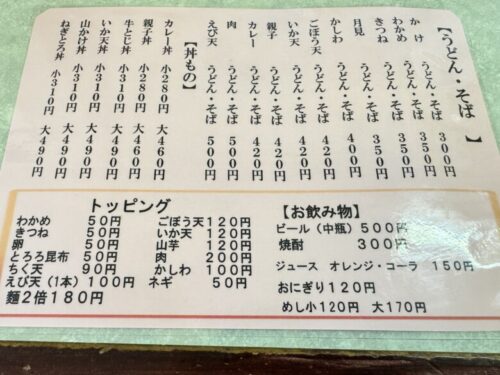 【うどん・そば】
かけ うどん・そば 300円
わかめ うどん・そば 350円
きつね うどん・そば 350円
月見 うどん・そば 350円
かしわ うどん・そば 400円
ごぼう天 うどん・そば 420円
いか天 うどん・そば 420円
親子 うどん・そば 420円
カレー うどん・そば 420円
肉 うどん・そば 500円
えび天 うどん・そば 500円
【丼もの】
カレー丼 小280円 大460円
親子丼 小280円 大460円
牛とじ丼 小310円 大490円
いか天丼 小310円 大490円
山かけ丼 小310円 大490円
ねぎとろ丼 小310円 大490円
トッピング
わかめ 50円
きつね 50円
卵 50円
とろろ昆布 50円
ちく天 90円
えび天(1本) 100円
麺2倍180円
ごぼう天120円
いか天 120円
山芋 120円
肉 200円
かしわ 100円
ネギ 50円
【お飲み物】
ビール(中瓶)500円
焼酎 300円
ジュース オレンジ・コーラ 150円
おにぎり120円
めし小120円 大170円